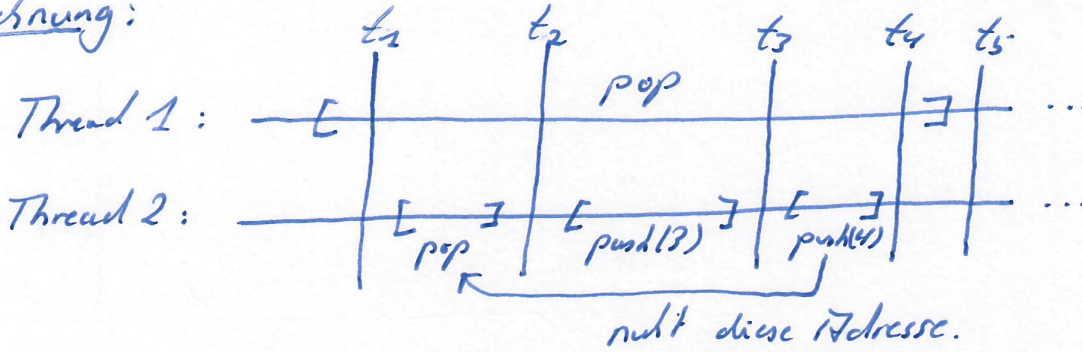 chnung:
t1 t2 t3 t4 t5
pop
Thread 1 : [ ] ...
Thread 2 : [ ] [ ] [ ] ...
pop push(3) push(4)
diese Adresse.